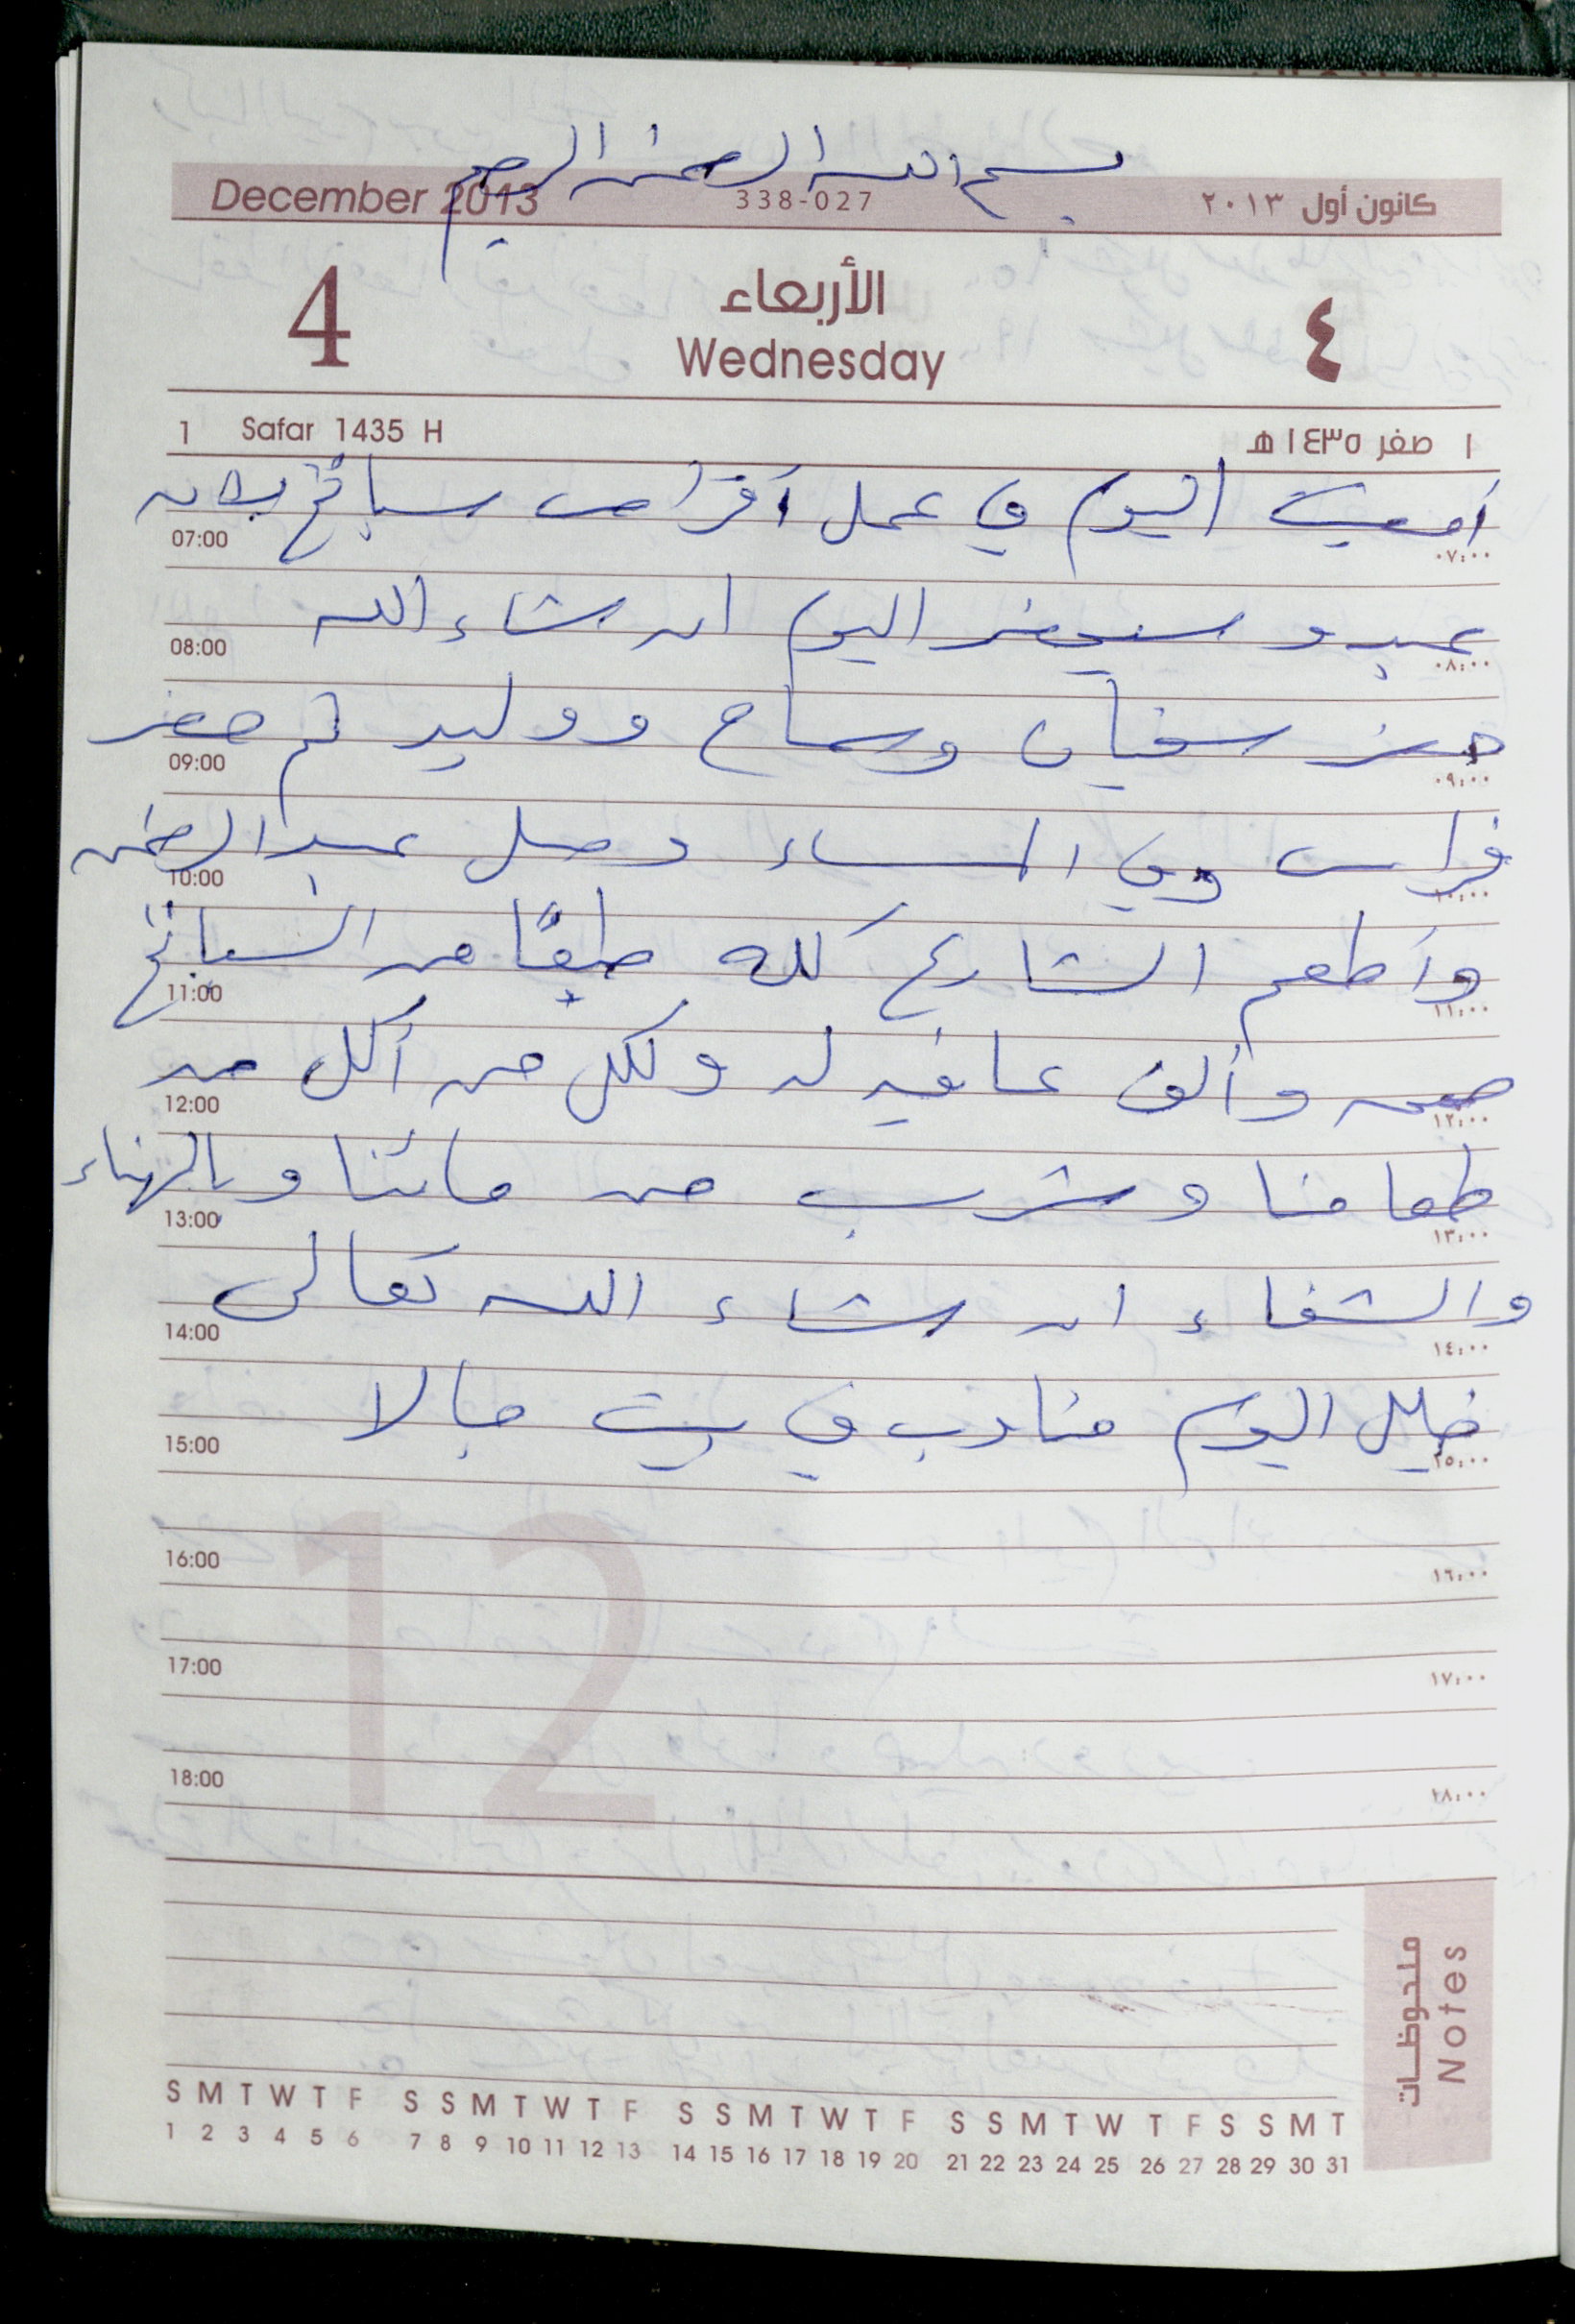 بسم الله الرحمن الرحيم
December 2013 338-027 كانون أول ٢٠١٣
4 الأربعاء ٤
Wednesday
1 Safar 1435 H ١ صفر ١٤٣٥ هـ
أمضيت اليوم في عمل أقراص سبانخ لأن
07:00 ٠٧:٠٠
عبد وسيحضر اليوم ان شاء الله
08:00 ٠٨:٠٠
حضر سفيان وسماح ووليد ثم حضر
09:00 ٠٩:٠٠
فراس وفي المساء وصل عبد الرحمن
10:00 ١٠:٠٠
وأطعم الشارع كله طبقًا من السبانخ
11:00 ١١:٠٠
صحه وألف عافيه له ولكل من أكل من
12:00 ١٢:٠٠
طعامنا وشرب من مائنا وبالهناء
13:00 ١٣:٠٠
والشفاء ان شاء الله تعالى
14:00 ١٤:٠٠
خليل اليوم مناوب في بيت جالا
15:00 ١٥:٠٠
16:00 ١٦:٠٠
17:00 ١٧:٠٠
18:00 ١٨:٠٠
12
ملحوظات
Notes
S M T W T F S S M T W T F S S M T W T F S S M T W T F S S M T
1 2 3 4 5 6 7 8 9 10 11 12 13 14 15 16 17 18 19 20 21 22 23 24 25 26 27 28 29 30 31